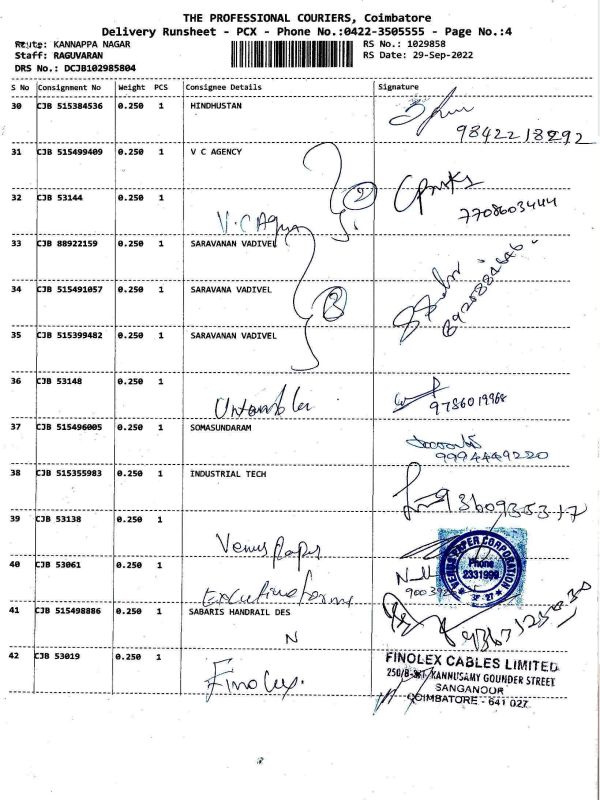 THE PROFESSIONAL COURIERS, Coimbatore
Delivery Runsheet - PCX - Phone No.:0422-3505555 - Page No.:4
Route: KANNAPPA NAGAR
RS No.: 1029858
Staff: RAGUVARAN
RS Date: 29-Sep-2022
DRS No.: DCJB102985804
S No Consignment No Weight PCS Consignee Details Signature
30 CJB 515384536 0.250 1 HINDHUSTAN
9842218292
31 CJB 515499409 0.250 1 V C AGENCY
32 CJB 53144 0.250 1 2
7708603444
V.C Agency
33 CJB 88922159 0.250 1 SARAVANAN VADIVEL
34 CJB 515491057 0.250 1 SARAVANA VADIVEL 3
35 CJB 515399482 0.250 1 SARAVANAN VADIVEL
36 CJB 53148 0.250 1
9786019968
37 CJB 515496005 0.250 1 SOMASUNDARAM
9994449220
38 CJB 515355983 0.250 1 INDUSTRIAL TECH
9360935317
39 CJB 53138 0.250 1
Venus Paper
VENUS PAPER CORPORATION
Phone
2331999
CBE-27
40 CJB 53061 0.250 1
41 CJB 515498886 0.250 1 SABARIS HANDRAIL DES
N
42 CJB 53019 0.250 1
Finolex
FINOLEX CABLES LIMITED
KANNUSAMY GOUNDER STREET
SANGANOOR
COIMBATORE - 641 027.